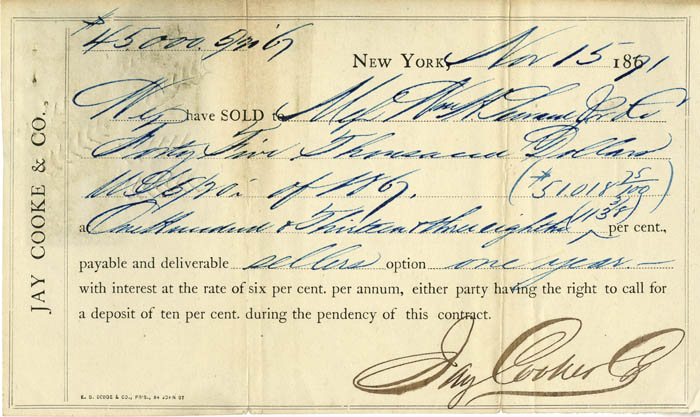 $45000. 5/20 67
NEW YORK, Nov 15 1871
We have SOLD to Mess Wm
Forty Five Thousand Dollars
U S 5/20s of 1867. ($51018 25/100)
a One Hundred & Thirteen & three eighths (113 3/8) per cent.,
payable and deliverable sellers option one year.—
with interest at the rate of six per cent. per annum, either party having the right to call for
a deposit of ten per cent. during the pendency of this contract.
Jay Cooke & Co
JAY COOKE & CO.